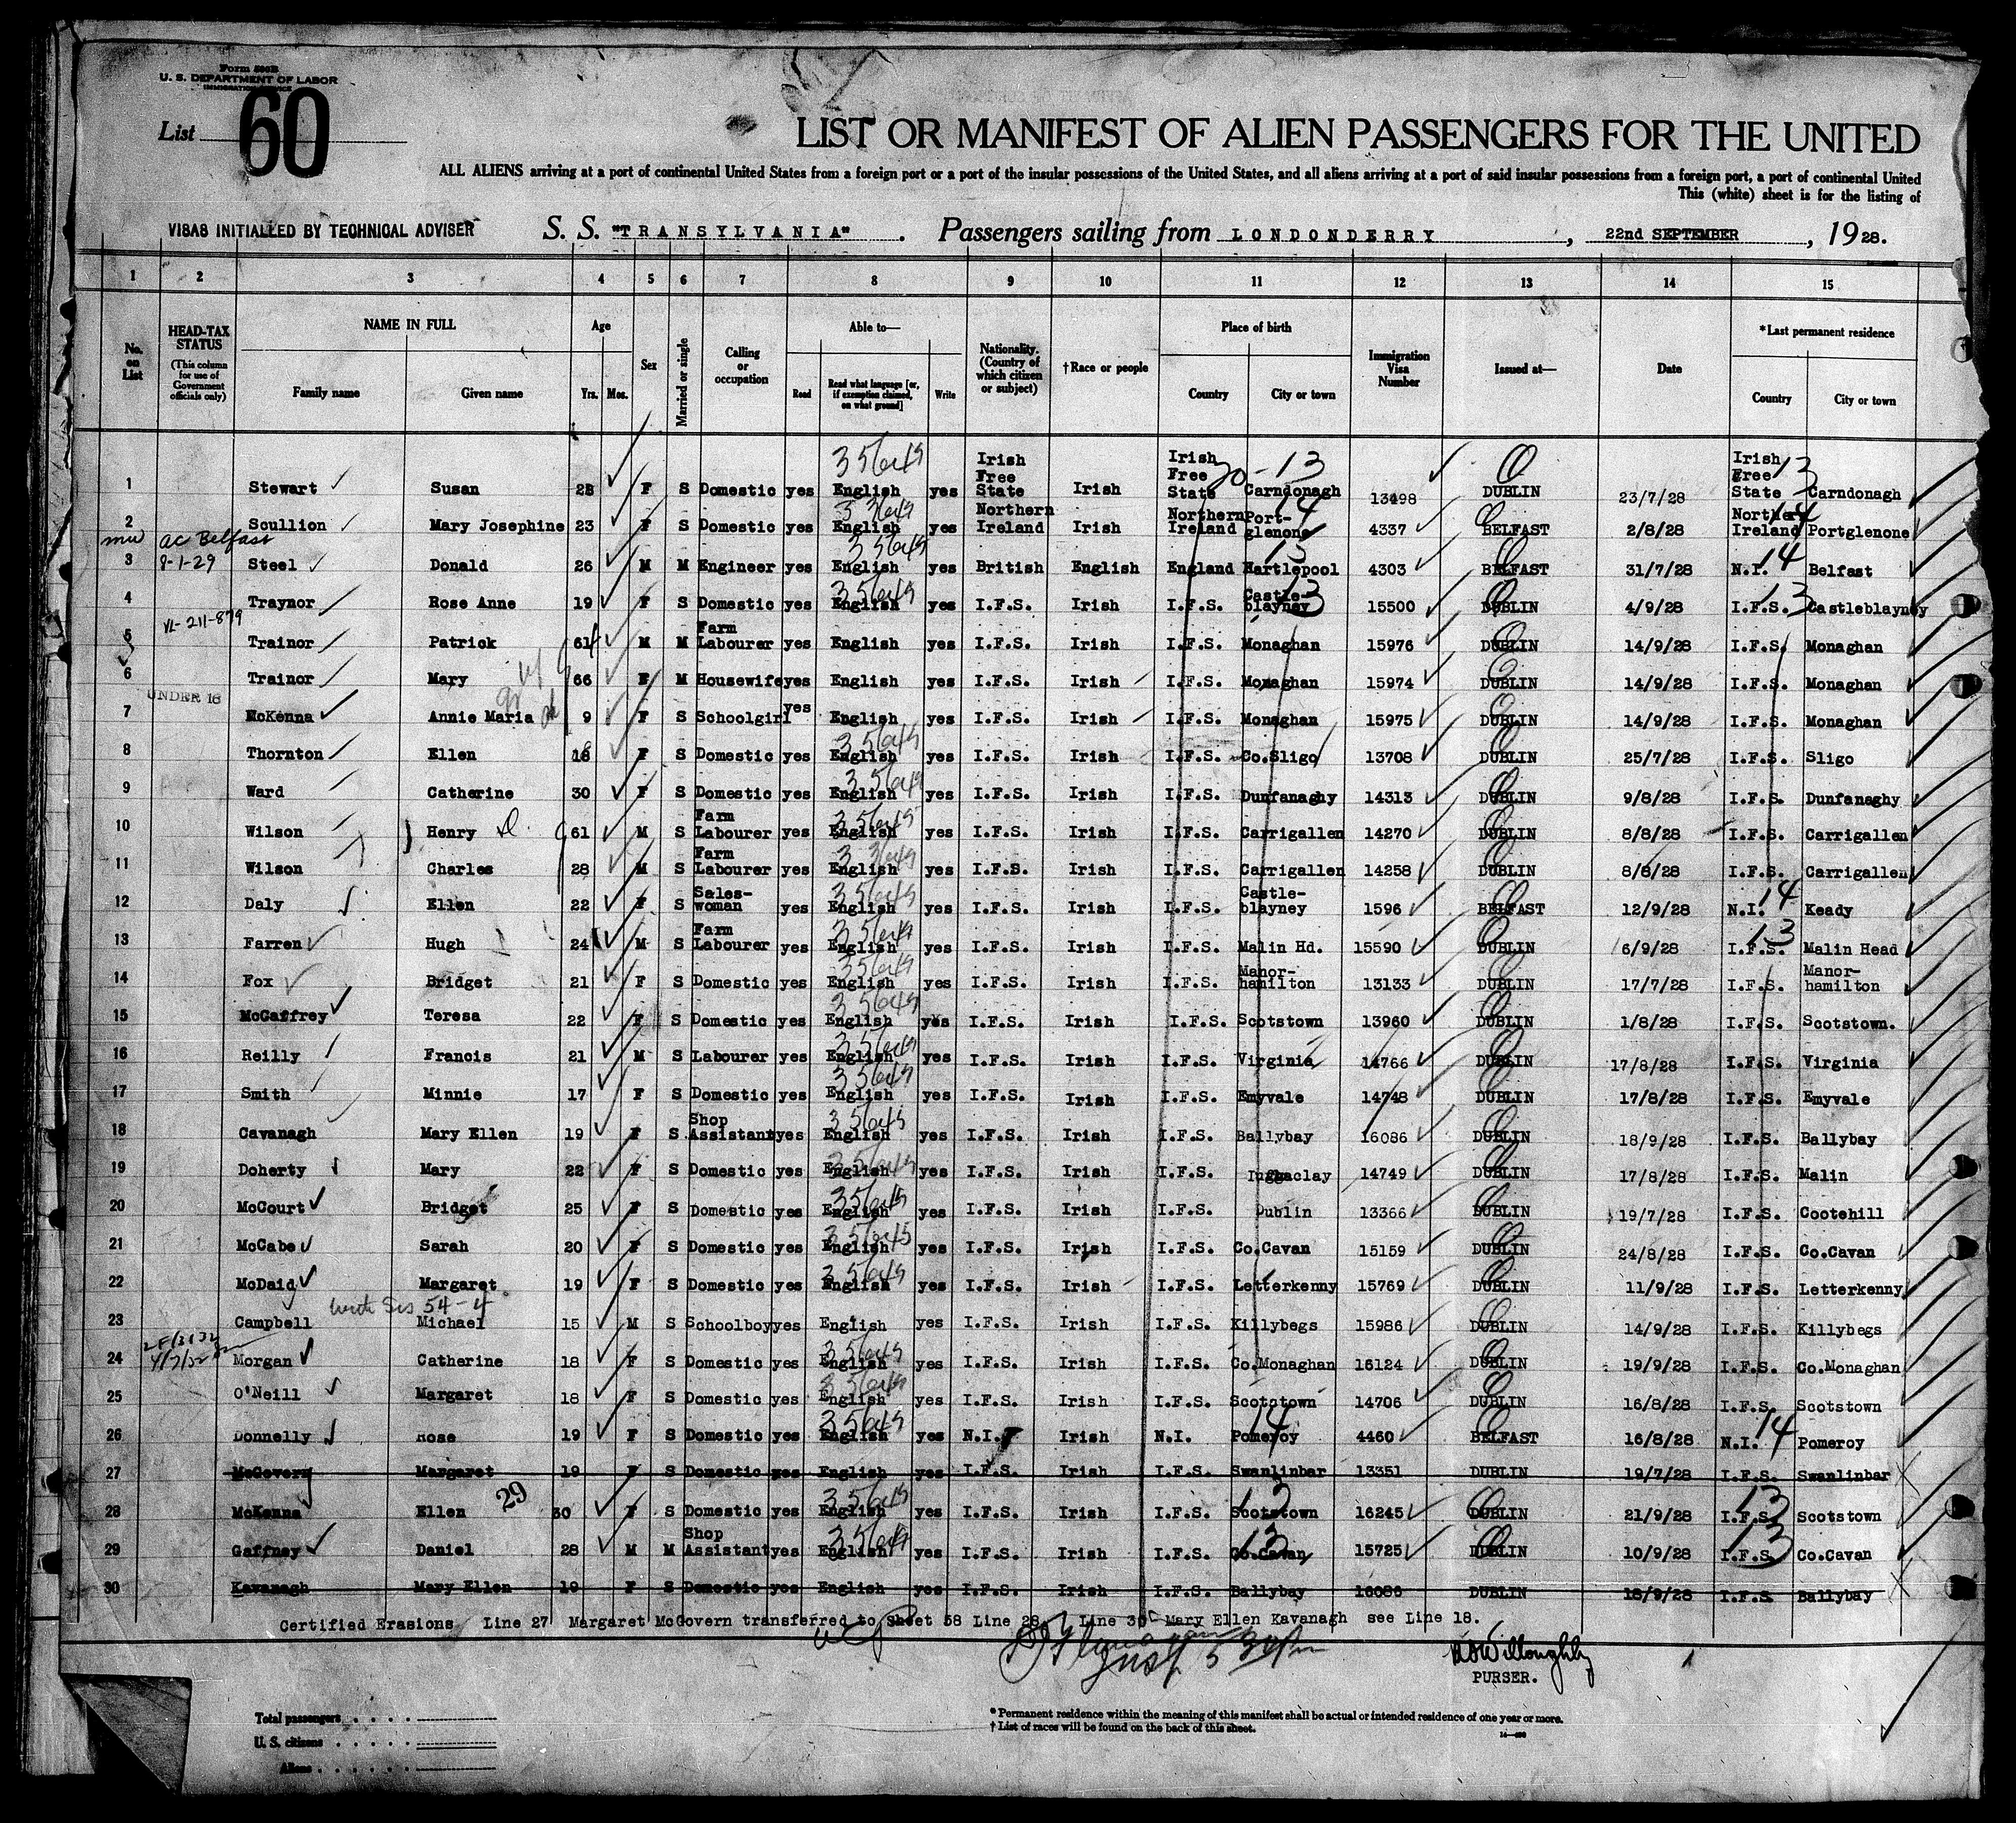 Form 500B
U. S. DEPARTMENT OF LABOR
IMMIGRATION SERVICE
List 60
LIST OR MANIFEST OF ALIEN PASSENGERS FOR THE UNITED
ALL ALIENS arriving at a port of continental United States from a foreign port or a port of the insular possessions of the United States, and all aliens arriving at a port of said insular possessions from a foreign port, a port of continental United
This (white) sheet is for the listing of
VISAS INITIALLED BY TECHNICAL ADVISER S. S. "TRANSYLVANIA" . Passengers sailing from LONDONDERRY , 22nd SEPTEMBER , 1928.
1 2 3 4 5 6 7 8 9 10 11 12 13 14 15
No. on List HEAD-TAX STATUS (This column for use of Government officials only) NAME IN FULL Family name Given name Age Yrs. Mos. Sex Married or single Calling or occupation Able to— Read Read what language [or, if exemption claimed, on what ground] Write Nationality. (Country of which citizen or subject) †Race or people Place of birth Country City or town Immigration Visa Number Issued at— Date *Last permanent residence Country City or town
1 Stewart Susan 28 F S Domestic yes English yes Irish Free State Irish Irish Free State Carndonagh 13498 DUBLIN 23/7/28 Irish Free State Carndonagh
2 Scullion Mary Josephine 23 F S Domestic yes English yes Northern Ireland Irish Northern Ireland Port-glenone 4337 BELFAST 2/8/28 Northern Ireland Portglenone
ac Belfast
3 8-1-29 Steel Donald 26 M M Engineer yes English yes British English England Hartlepool 4303 BELFAST 31/7/28 N.I. Belfast
4 Traynor Rose Anne 19 F S Domestic yes English yes I.F.S. Irish I.F.S. Castle-blayney 15500 DUBLIN 4/9/28 I.F.S. Castleblayney
VL-211-879
5 Trainor Patrick 61 M M Farm Labourer yes English yes I.F.S. Irish I.F.S. Monaghan 15976 DUBLIN 14/9/28 I.F.S. Monaghan
6 Trainor Mary 66 F M Housewife yes English yes I.F.S. Irish I.F.S. Monaghan 15974 DUBLIN 14/9/28 I.F.S. Monaghan
UNDER 16
7 McKenna Annie Maria 9 F S Schoolgirl yes English yes I.F.S. Irish I.F.S. Monaghan 15975 DUBLIN 14/9/28 I.F.S. Monaghan
8 Thornton Ellen 18 F S Domestic yes English yes I.F.S. Irish I.F.S. Co.Sligo 13708 DUBLIN 25/7/28 I.F.S. Sligo
9 Ward Catherine 30 F S Domestic yes English yes I.F.S. Irish I.F.S. Dunfanaghy 14313 DUBLIN 9/8/28 I.F.S. Dunfanaghy
10 Wilson Henry 61 M S Farm Labourer yes English yes I.F.S. Irish I.F.S. Carrigallen 14270 DUBLIN 8/8/28 I.F.S. Carrigallen
11 Wilson Charles 28 M S Farm Labourer yes English yes I.F.S. Irish I.F.S. Carrigallen 14258 DUBLIN 8/8/28 I.F.S. Carrigallen
12 Daly Ellen 22 F S Sales-woman yes English yes I.F.S. Irish I.F.S. Castle-blayney 1596 BELFAST 12/9/28 N.I. Keady
13 Farren Hugh 24 M S Farm Labourer yes English yes I.F.S. Irish I.F.S. Malin Hd. 15590 DUBLIN 6/9/28 I.F.S. Malin Head
14 Fox Bridget 21 F S Domestic yes English yes I.F.S. Irish I.F.S. Manor-hamilton 13133 DUBLIN 17/7/28 I.F.S. Manor-hamilton
15 McCaffrey Teresa 22 F S Domestic yes English yes I.F.S. Irish I.F.S. Scotstown 13960 DUBLIN 1/8/28 I.F.S. Scotstown.
16 Reilly Francis 21 M S Labourer yes English yes I.F.S. Irish I.F.S. Virginia 14766 DUBLIN 17/8/28 I.F.S. Virginia
17 Smith Minnie 17 F S Domestic yes English yes I.F.S. Irish I.F.S. Emyvale 14748 DUBLIN 17/8/28 I.F.S. Emyvale
18 Cavanagh Mary Ellen 19 F S Shop Assistant yes English yes I.F.S. Irish I.F.S. Ballybay 16086 DUBLIN 18/9/28 I.F.S. Ballybay
19 Doherty Mary 22 F S Domestic yes English yes I.F.S. Irish I.F.S. 14749 DUBLIN 17/8/28 I.F.S. Malin
20 McCourt Bridget 25 F S Domestic yes English yes I.F.S. Irish I.F.S. Dublin 13366 DUBLIN 19/7/28 I.F.S. Cootehill
21 McCabe Sarah 20 F S Domestic yes English yes I.F.S. Irish I.F.S. Co.Cavan 15159 DUBLIN 24/8/28 I.F.S. Co.Cavan
22 McDaid Margaret 19 F S Domestic yes English yes I.F.S. Irish I.F.S. Letterkenny 15769 DUBLIN 11/9/28 I.F.S. Letterkenny
with Sis 54-4
23 Campbell Michael 15 M S Schoolboy yes English yes I.F.S. Irish I.F.S. Killybegs 15986 DUBLIN 14/9/28 I.F.S. Killybegs
24 Morgan Catherine 18 F S Domestic yes English yes I.F.S. Irish I.F.S. Co.Monaghan 16124 DUBLIN 19/9/28 I.F.S. Co.Monaghan
25 O'Neill Margaret 18 F S Domestic yes English yes I.F.S. Irish I.F.S. Scotstown 14706 DUBLIN 16/8/28 I.F.S. Scotstown
26 Donnelly Rose 19 F S Domestic yes English yes N.I. Irish N.I. Pomeroy 4460 BELFAST 16/8/28 N.I. Pomeroy
27 McGovern Margaret 19 F S Domestic yes English yes I.F.S. Irish I.F.S. Swanlinbar 13351 DUBLIN 19/7/28 I.F.S. Swanlinbar
28 McKenna Ellen 29 30 F S Domestic yes English yes I.F.S. Irish I.F.S. Scotstown 16245 DUBLIN 21/9/28 I.F.S. Scotstown
29 Gaffney Daniel 28 M M Shop Assistant yes English yes I.F.S. Irish I.F.S. Co.Cavan 15725 DUBLIN 10/9/28 I.F.S. Co.Cavan
30 Kavanagh Mary Ellen 19 F S Domestic yes English yes I.F.S. Irish I.F.S. Ballybay 16086 DUBLIN 18/9/28 I.F.S. Ballybay
Certified Erasions Line 27 Margaret McGovern transferred to Sheet 58 Line 28. Line 30 Mary Ellen Kavanagh see Line 18.
Willoughby
PURSER.
Total passengers
U. S. citizens
Aliens
* Permanent residence within the meaning of this manifest shall be actual or intended residence of one year or more.
† List of races will be found on the back of this sheet.